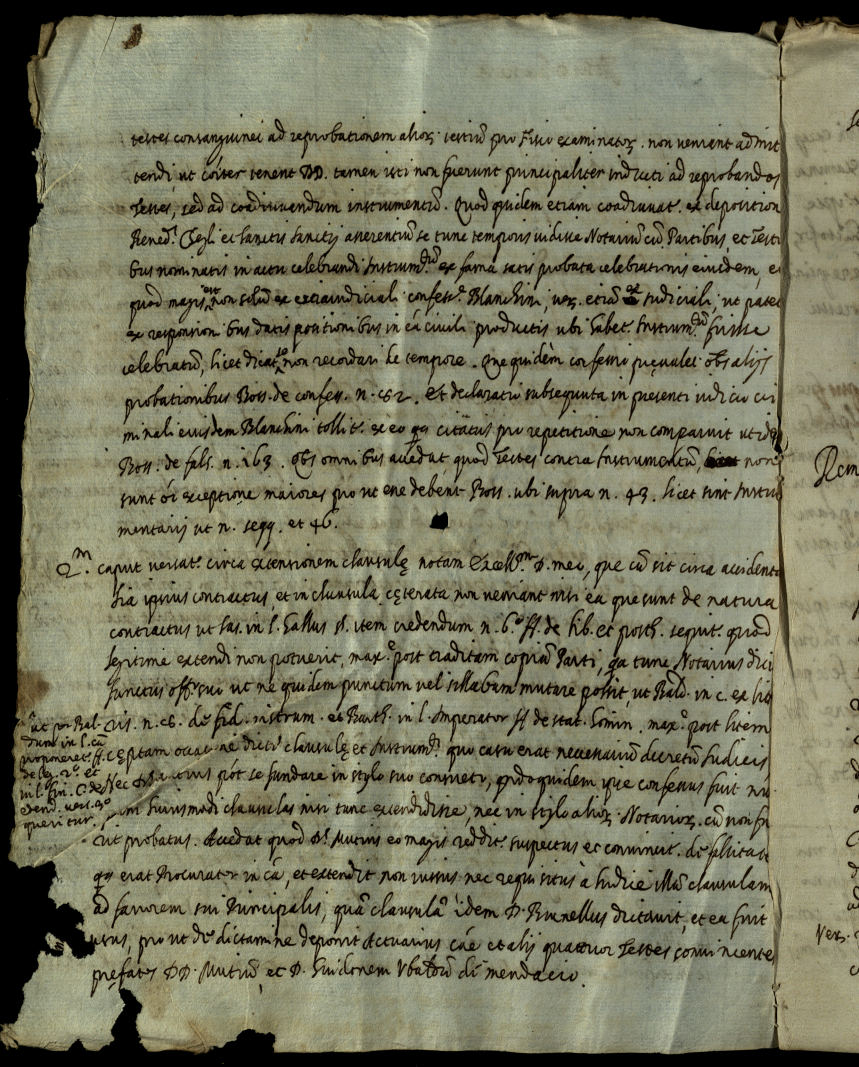 testes consanguinei ad reprobationem alior. testiũ pro Fisco examinator. non veniant admit
tendi, ut coiter tenent DD. tamen isti non fuerunt principaliter inducti ad reprobandos
Testes, sed ad coadiuvandum instrumentũ. Quod quidem etiam coadiuvat. ex deposition
Bened.i et Sanctis Sanctij asserentiũ se tunc temporis vidisse Notariũ cũ Partibus, et Testi
bus nominatis in actu celebrandi Instrum. ex fama satis probata celebrationis eiusdem, e
quod magis est non solũ ex extraiudiciali confess.e Blanchini, ver. etiã ex Iudiciali, ut patet
ex responsionibus datis positionibus in cã civili productis ubi habet Instrum. fuisse
celebratũ, licet dicat se non recordari de tempore. Que quidem confessio prevalet obs alijs
probationibus Boss. de confess. n. 62. et declaratio subsequuta in presenti iudicio cri
minali eiusdem Blanchini tollit. ex eo qa citatus pro repetitione non comparuit
Boss. de fals. n. 163. Obs omnibus accedat quod Testes contra Instrumentũ, non
sunt oi exceptione maiores pro ut esse debent Boss. ubi supra n. 43. licet sint Instru
mentarij ut n. seqq. et 46.
2.m caput versat. circa extensionem clausulę notam Excell.mo D. meo, que cũ sit circa accident
lia ipsius contractus, et in clausula cęterata non veniant nisi ea que sunt de natura
contractus ut Ias. in l. Gallus §. item credendum n. 6. ff. de lib. et posth. sequit. quod
legitime extendi non potuerit, max.e post traditam copiã Parti, qa tunc Notarius dici
functus off.o sui ut ne quidem punctum vel sillabam mutare possit, ut Bald. in c. ex lit
ris. n. 6. de fid. instrum. et Barth. in l. Imperator ff de stat. homin. max.e post litem
cęptam occ.ne dictę clausulę et Instrum. quo casu erat necessariũ decretũ Iudicis
ut per Bal
dum in l. cũ
proponeret. ff.
de leg. 2.o et
in l. fin. C. de
edend. vers. 3.o
queritur.
Nec D. Mutius pót se fundare in stylo suo consueto, qñdoquidem ipse confessus fuit nu
huiusmodi clausulas nisi tunc extendidisse, nec in stylo alior. Notarior. cũ non fu
rit probatus. Accedat quod D. Mutius eo magis reddit. suspectus et convincit. de falsitate
qa erat Procurator in cã, et extendit non iussus nec requisitus à Iudice illã clausulam
ad favorem sui Principalis, quã clausulã idem D. Brunellus dictavit, et ea fuit
usus, pro ut de dictamine deposuit Actuarius cáe et alij quatuor Testes convincentes
prefatos DD. Mutiũ, et D. Guidonem Ubaldũ de mendacio.